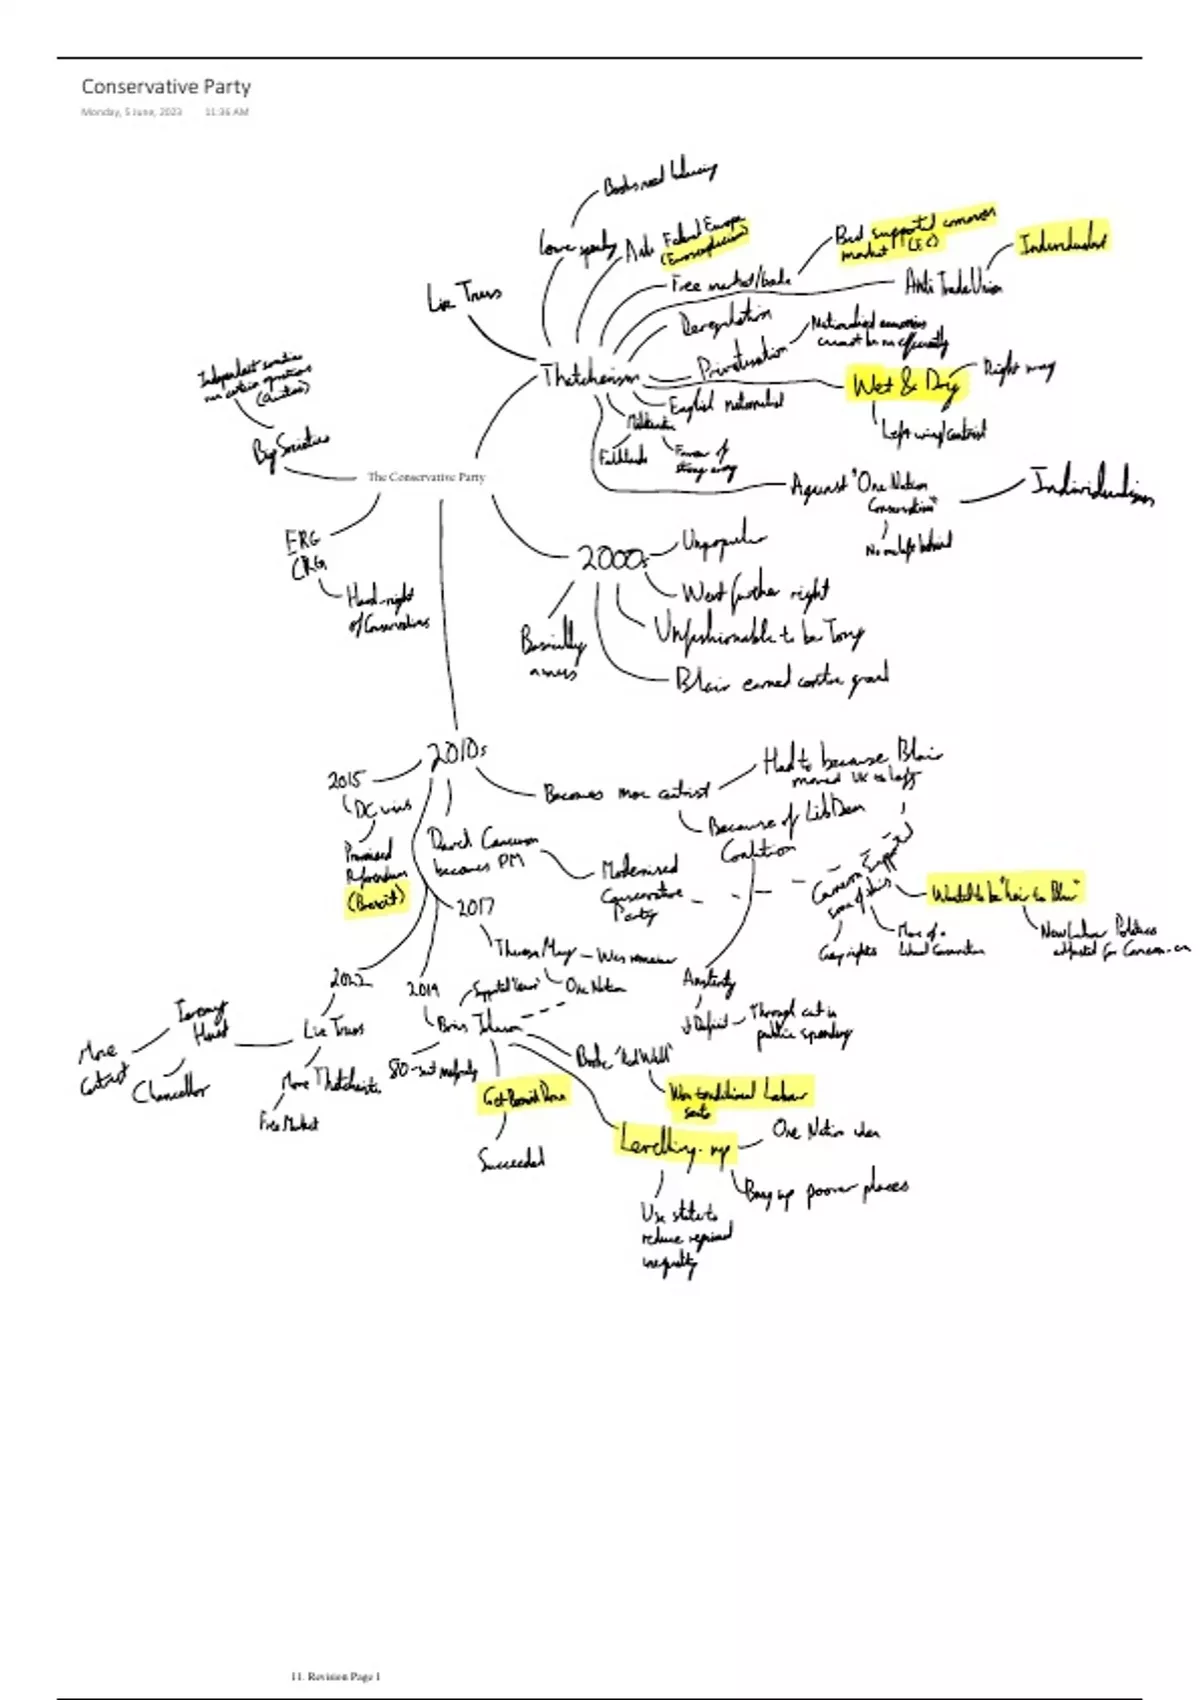 Conservative Party
Monday, 5 June, 2023 11:36 AM
Books need balancing
Lower spending
Anti Federal Europe
(Euroscepticism)
But supported common
market (EC)
Individualist
Free market/trade
Anti Trade Union
Liz Truss
Deregulation
Nationalised
cannot be run efficiently
Privatisation
Thatcherism
Right wing
Wet & Dry
English nationalist
Left wing/centrist
Falklands
Favour of
strong army
Big Societies
The Conservative Party
Against "One Nation
Conservatism"
Individualism
No one left behind
ERG
CRG
Hard-right
of Conservatives
2000s
Unpopular
Went further right
Unfashionable to be Tory
Basically
a mess
Blair earned centre ground
2010s
2015
DC wins
Promised
Referendum
(Brexit)
Becomes more centrist
Had to because Blair
moved UK to left
Because of LibDem
Coalition
David Cameron
becomes PM
Modernised
Conservative
Party
Cameron supported
some of this
Wanted to be "heir to Blair"
Gay rights
More of a
Liberal Conservative
New Labour Politics
adjusted for Cameron
2017
Theresa May
Was remainer
One Nation
Austerity
↓ Deficit
Through cut in
public spending
2022
2019
Boris Johnson
80-seat majority
Liz Truss
More Thatcherite
Free Market
Jeremy
Hunt
More
Centrist
Chancellor
Broke "Red Wall"
Won traditional Labour
seats
Get Brexit Done
Succeeded
Levelling-up
One Nation idea
Bring up poorer places
Use state to
reduce regional
inequality
11. Revision Page 1